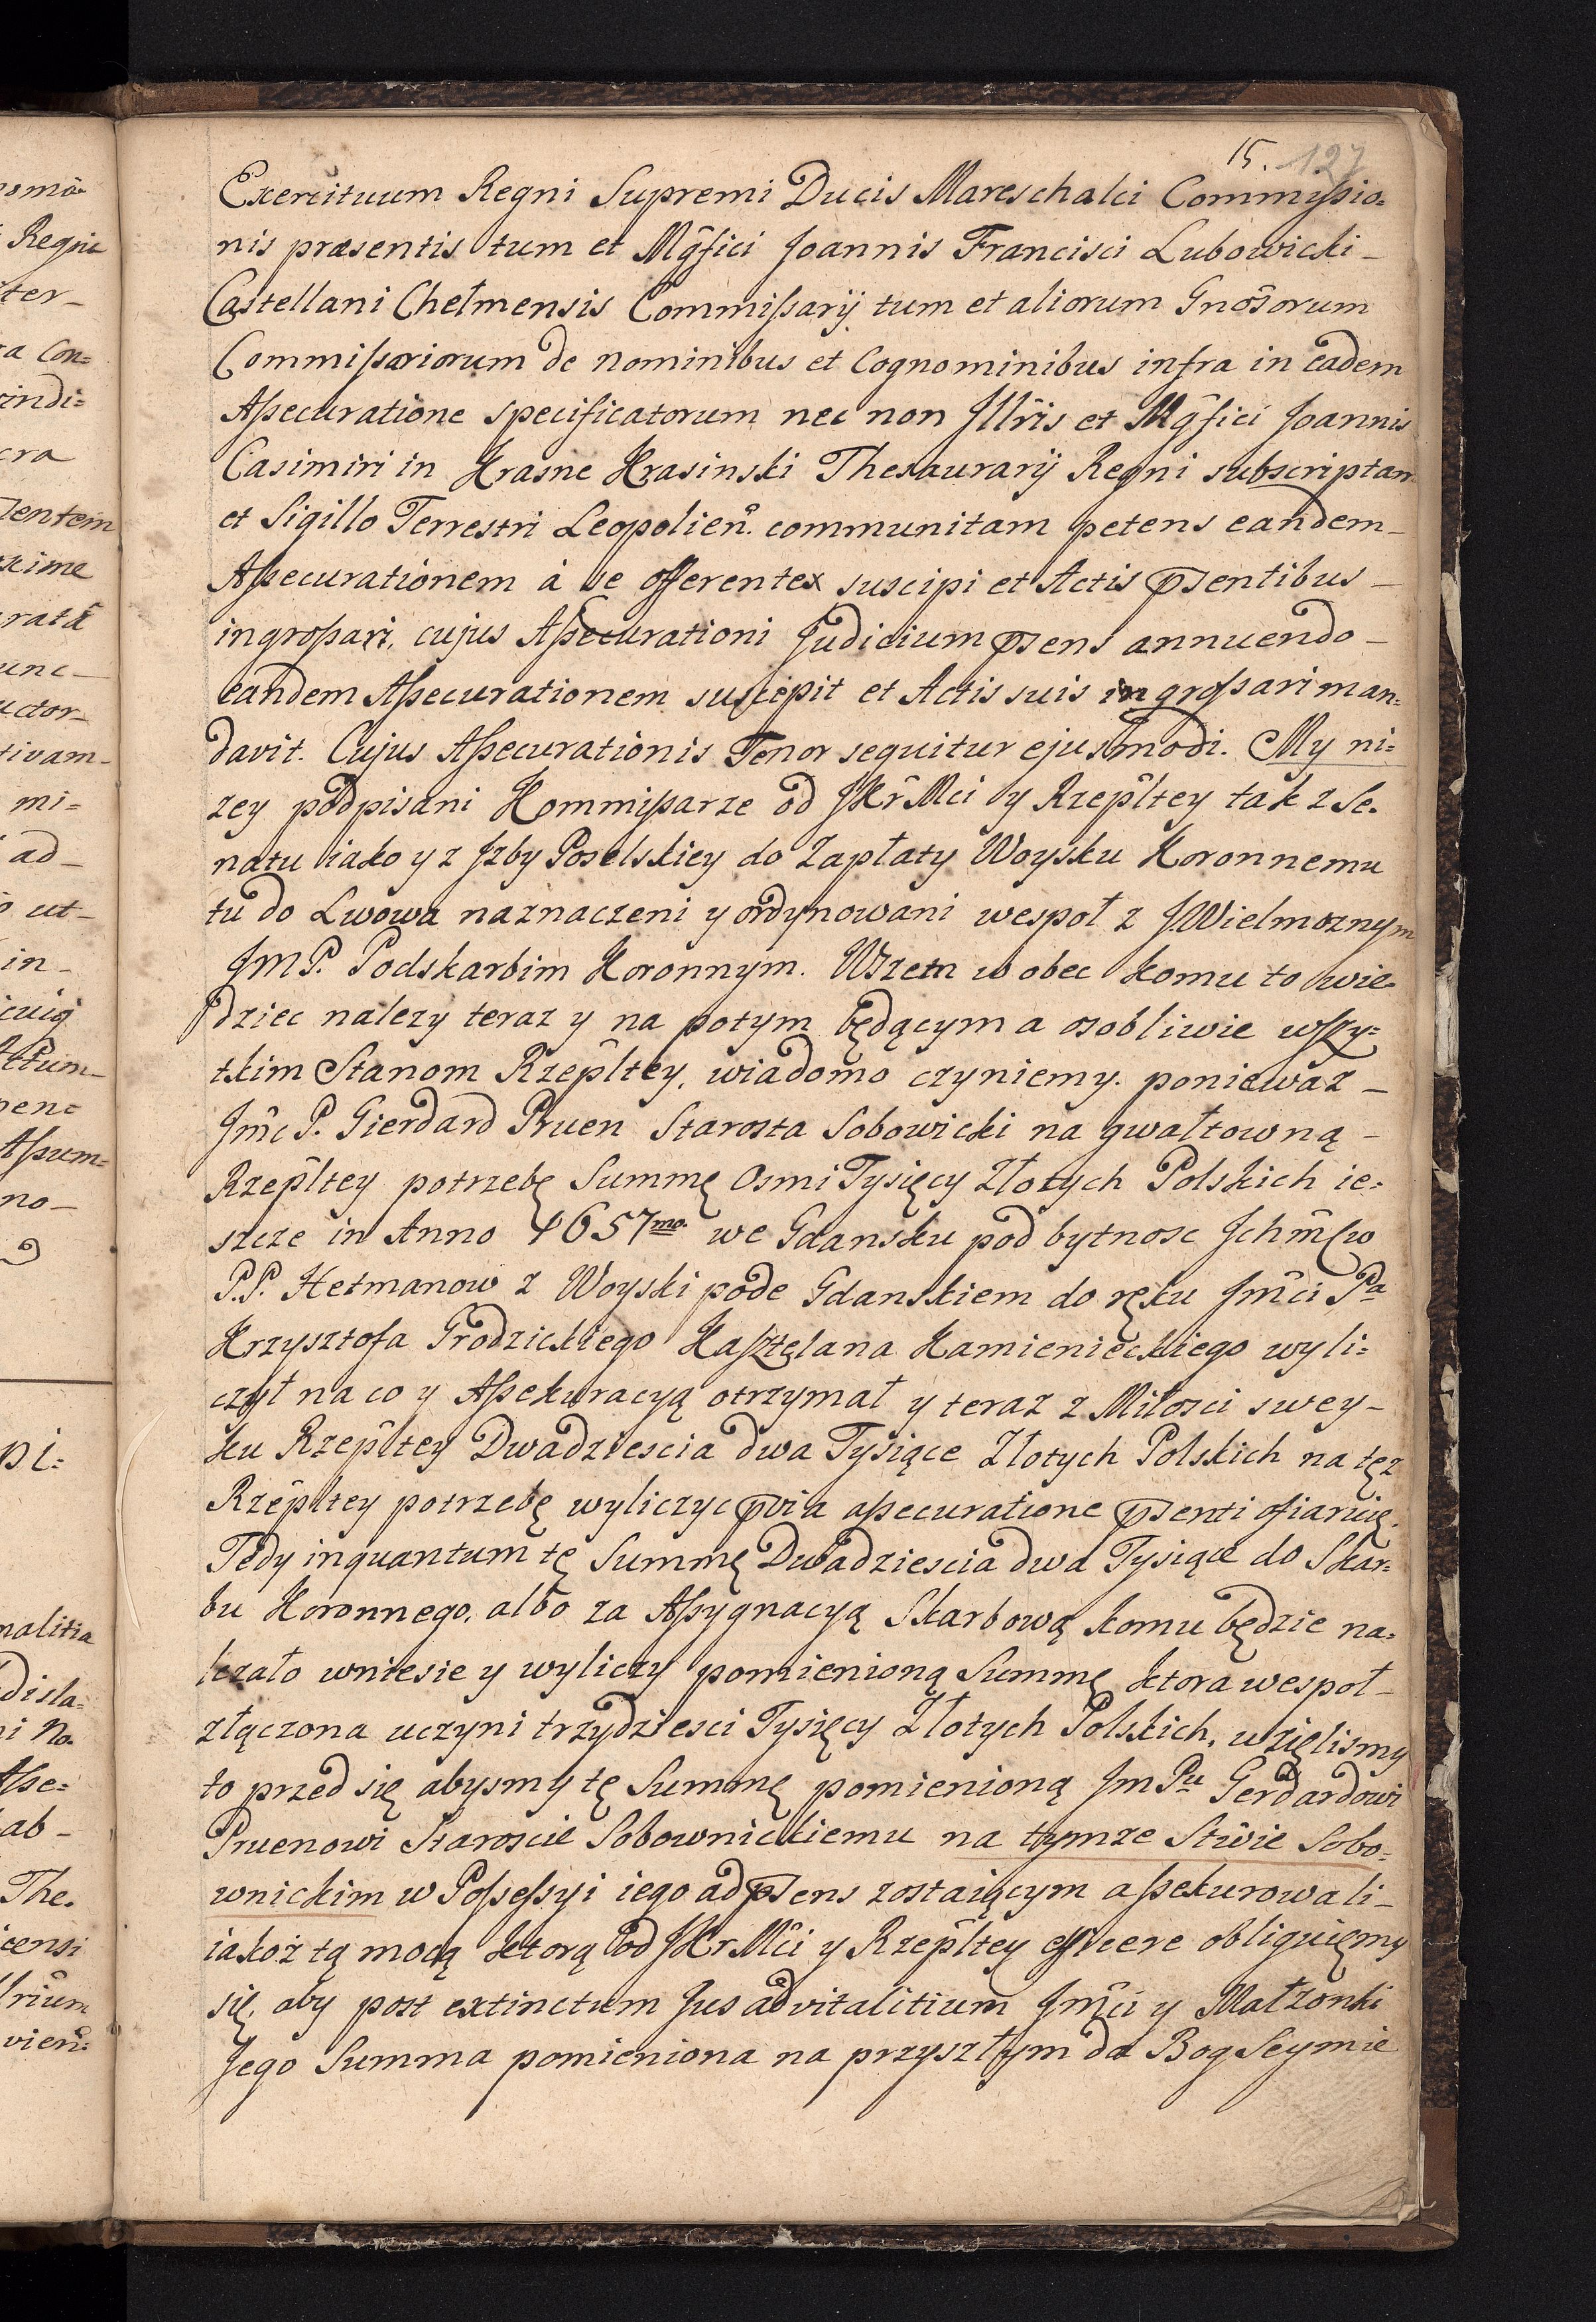 15. 127
Exercituum Regni Supremi Ducis Mareschalci Commißio=
nis præsentis tum et Mg̃fici Joannis Francisci Lubowicki –
Castellani Chełmensis Commißarij tum et aliorum Gnõsorum
Commißariorum de nominibus et Cognominibus infra in eadem
Aßecuratione specificatorum nec non Jllr̃is et Mg̃fici Joannis
Casimiri in Krasne Krasinski Thesaurarij Regni subscriptam
et Sigillo Terrestri Leopolien̄. communitam petens eandem –
Aßecurationem à se offerentex suscipi et Actis p̄sentibus –
ingroßari, cujus Aßecurationi Judicium p̄sens annuendo –
eandem Aßecurationem suscepit et Actis suis ingroßari man=
davit. Cujus Aßecurationis Tenor sequitur ejusmodi. My ni=
zey podpisani Kommißarze od JKr̃Mci y Rzepl̃tey tak z Se=
natu iako y z Jzby Poselskiey do Zapłaty Woysku Koronnemu
tu do Lwowa naznaczeni y ordynowani wespoł z JWielmoznym
JmP. Podskarbim Koronnym. Wszem w obec komu to wie=
dziec nalezy teraz y na potym będącym a osobliwie wszy=
tkim Stanom Rzepl̃tey, wiadomo czyniemy. poniewaz –
Jm̃c P. Gierdard Pruen Starosta Sobowicki na gwałtowną –
Rzepl̃tey potrzebę Summę Osmi Tysięcy Złotych Polskich ie=
szcze in Anno 1657mo. we Gdansku pod bytnosc Jchm̃sciow
P.P. Hetmanow z Woyski pode Gdanskiem do ręku Jm̃ci Pa
Krzysztofa Grodzickiego Kasztelana Kamienieckiego wyli=
czył na co y Aßekuracyą otrzymał y teraz z Miłosci swey –
ku Rzepl̃tey Dwadziescia dwa Tysiące Złotych Polskich na tęz
Rzepl̃tey potrzebę wyliczyc p̄via aßecuratione p̄senti ofiaruię.
Tedy inquantum tę Summę Dwadziescia dwa Tysiące do Skar=
bu Koronnego, albo za Aßygnacyą Skarbową komu będzie na=
lezało wniesie y wyliczy pomienioną Summę ktora wespoł –
złączona uczyni trzydziesci Tysięcy Złotych Polskich, wzięlismy
to przed się abysmy tę Summę pomienioną JmPu Gerdardowi
Pruenowi Staroscie Sobownickiemu na tymze Stw̃ie Sobo=
wnickim w Poßeßyi iego ad p̄sens zostaiącym aßekurowali –
iakoż tą mocą ktorą od JKrMc̃i y Rzepl̃tey efficere obliguięmy
się, aby post extinctum Jus advitalitium Jm̃ci y Małzonki
Jego Summa pomieniona na przyszłym da Bog Seymie